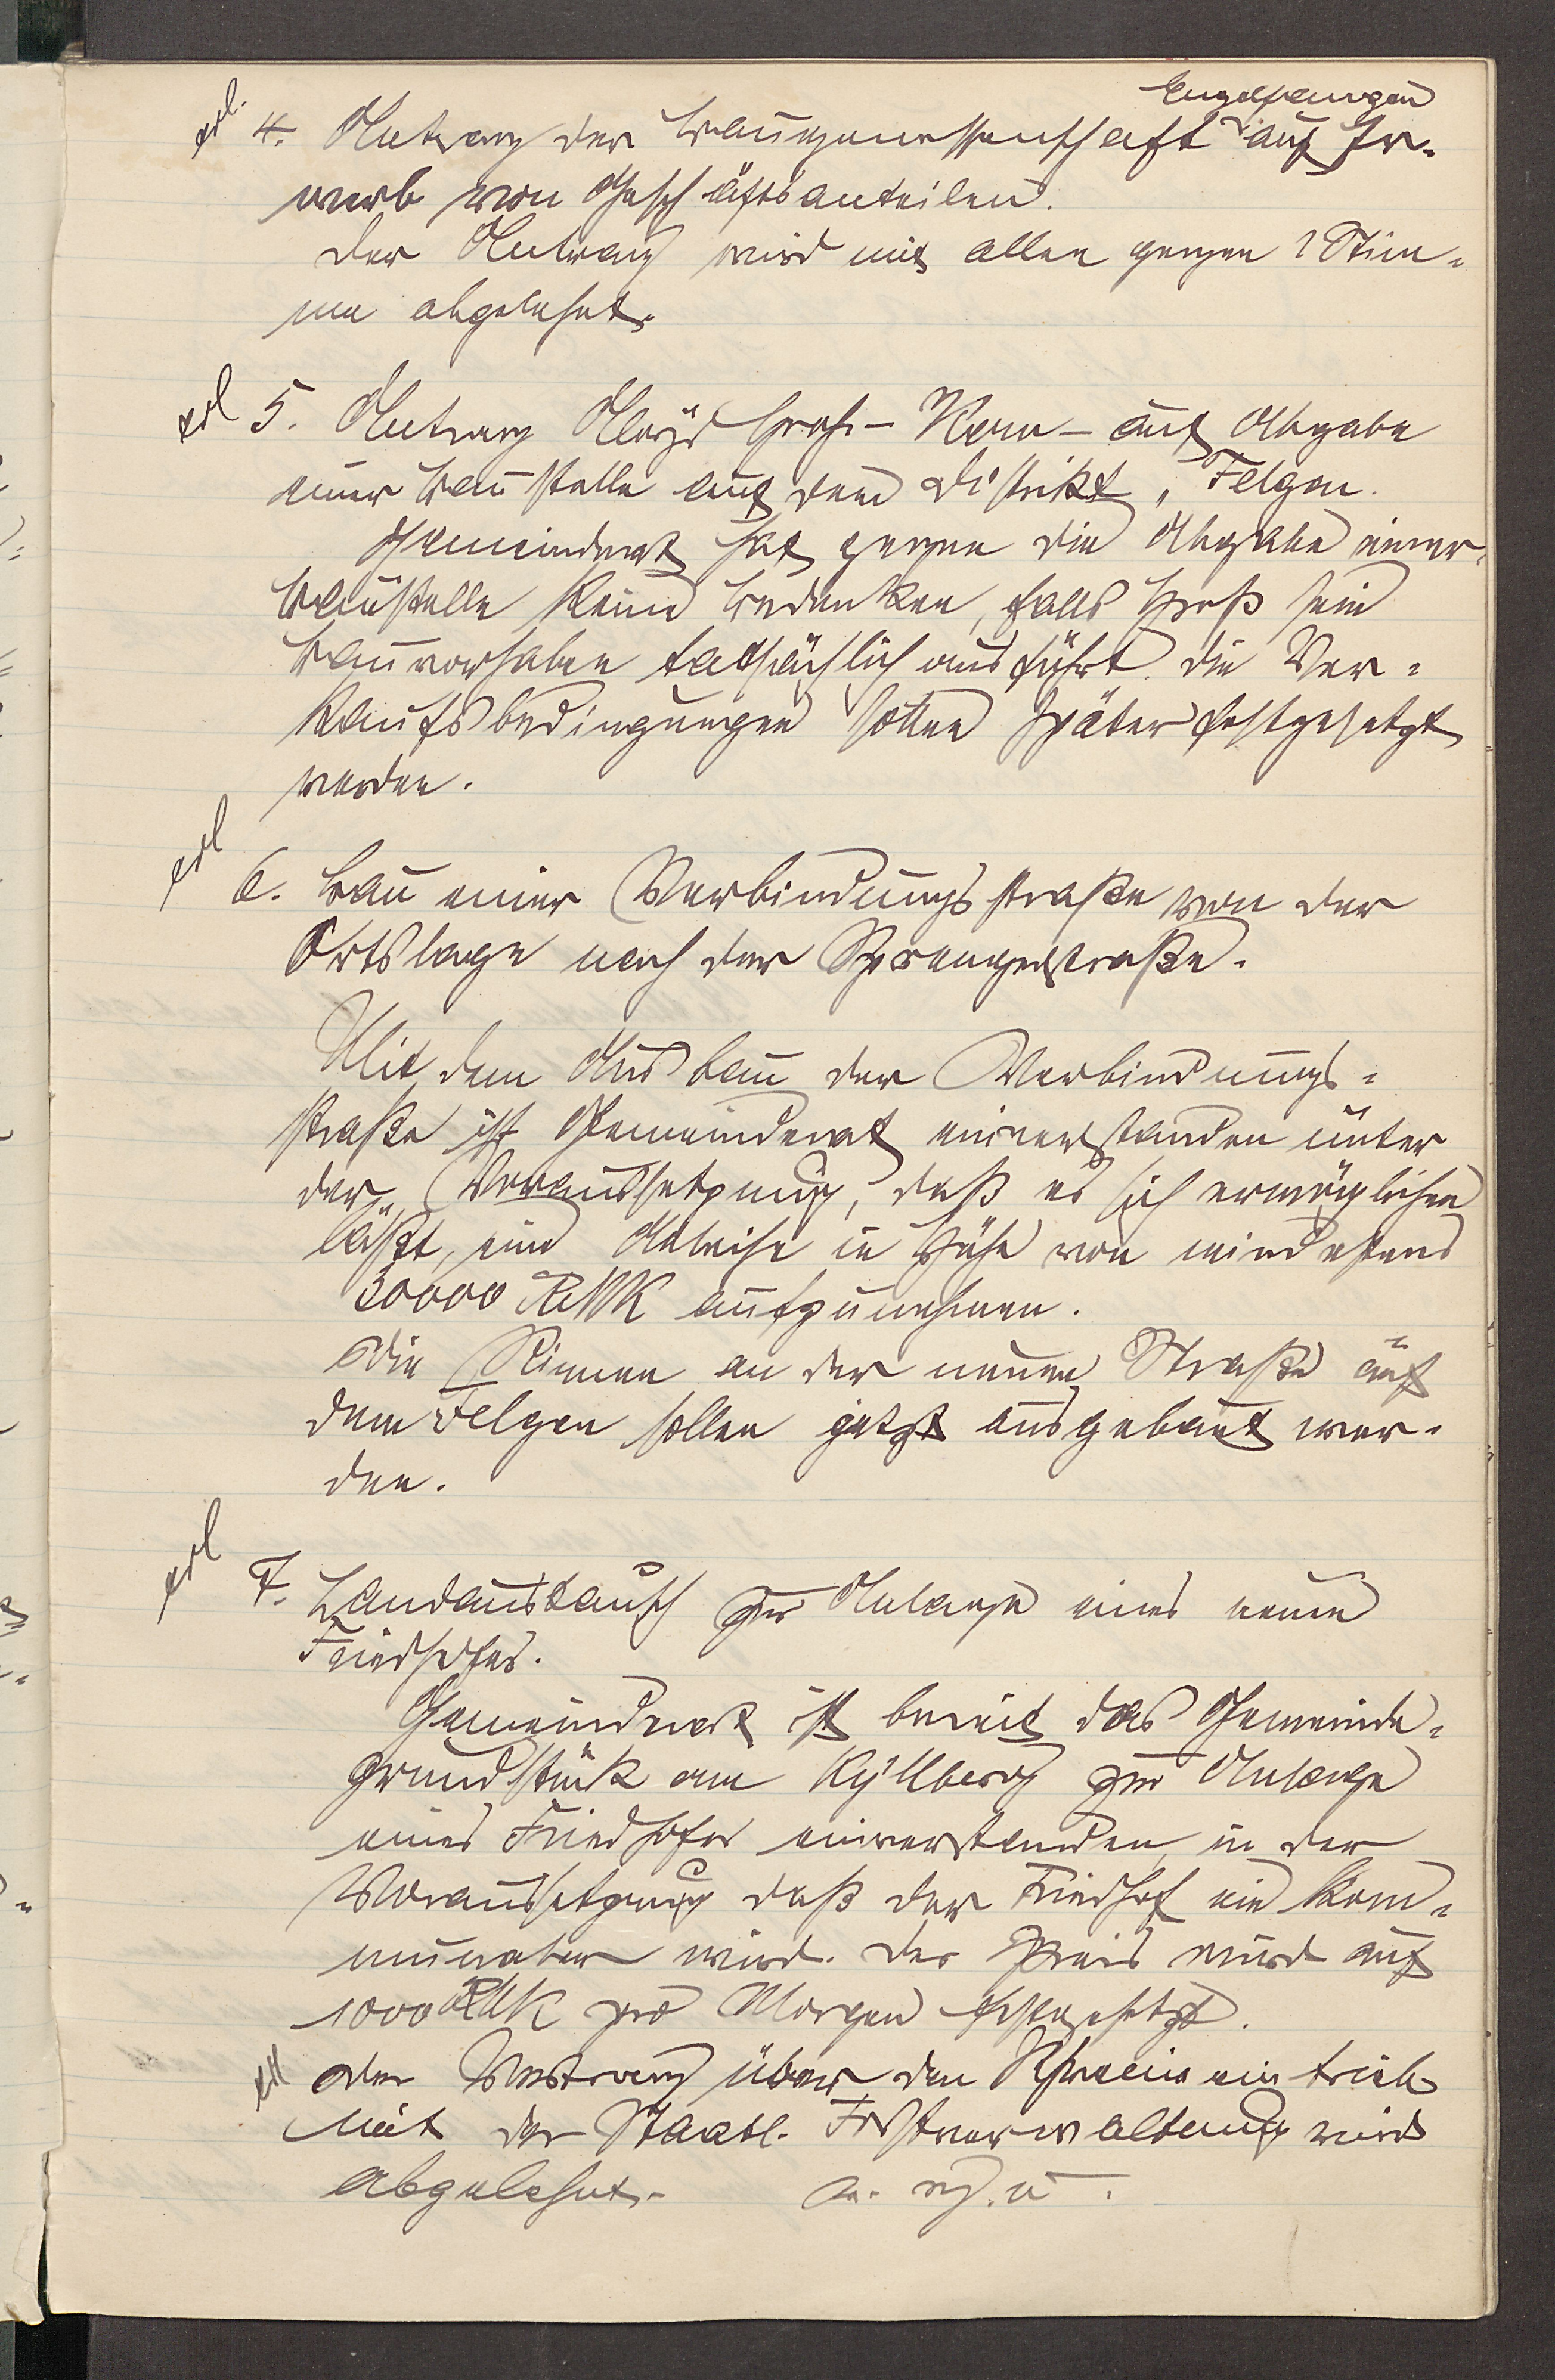 Engelhangen
erl. 4. Antrag der Baugenossenschaft auf Er-
werb von Geschäftsanteilen.
Der Antrag wird mit allen gegen 1 Stim-
me abgelehnt.
erl 5. Antrag Aloys Groß- Kern - auf Abgabe
einer Baustelle auf dem Distrikt "Felgen.
Gemeinderat hat gegen die Abgabe einer
Baustelle keine Bedenken, falls Groß sein
Bauvorhaben tatsächlich ausführt. Die Ver-
kaufsbedingungen sollen später festgesetzt
werden.
erl 6. Bau einer Verbindungsstraße von der
Ortslage nach der Sprengerstraße.
Mit dem Ausbau der Verbindungs-
straße ist Gemeinderat einverstanden unter
der Voraussetzung, daß es sich ermöglichen
läßt, eine Anleihe in Höhe von mindestens
30000 RMK aufzunehmen.
Die Rinnen an der neuen Straße auf
dem Felgen sollen jetzt ausgebaut wer-
den.
erl 7. Landaustausch zur Anlage eines neuen
Friedhofes.
Gemeinderat ist bereit das Gemeinde-
grundstück am Kyllberg zur Anlage
eines Friedhofes einverstanden, in der
Voraussetzung daß der Friedhof ein kom-
munaler wird. Der Preis wird auf
1000 RMK pro Morgen festgesetzt.
erl Der Vertrag über den Schweineintrieb
mit der Staatl. Forstverwaltung wird
abgelehnt. v. g. u.